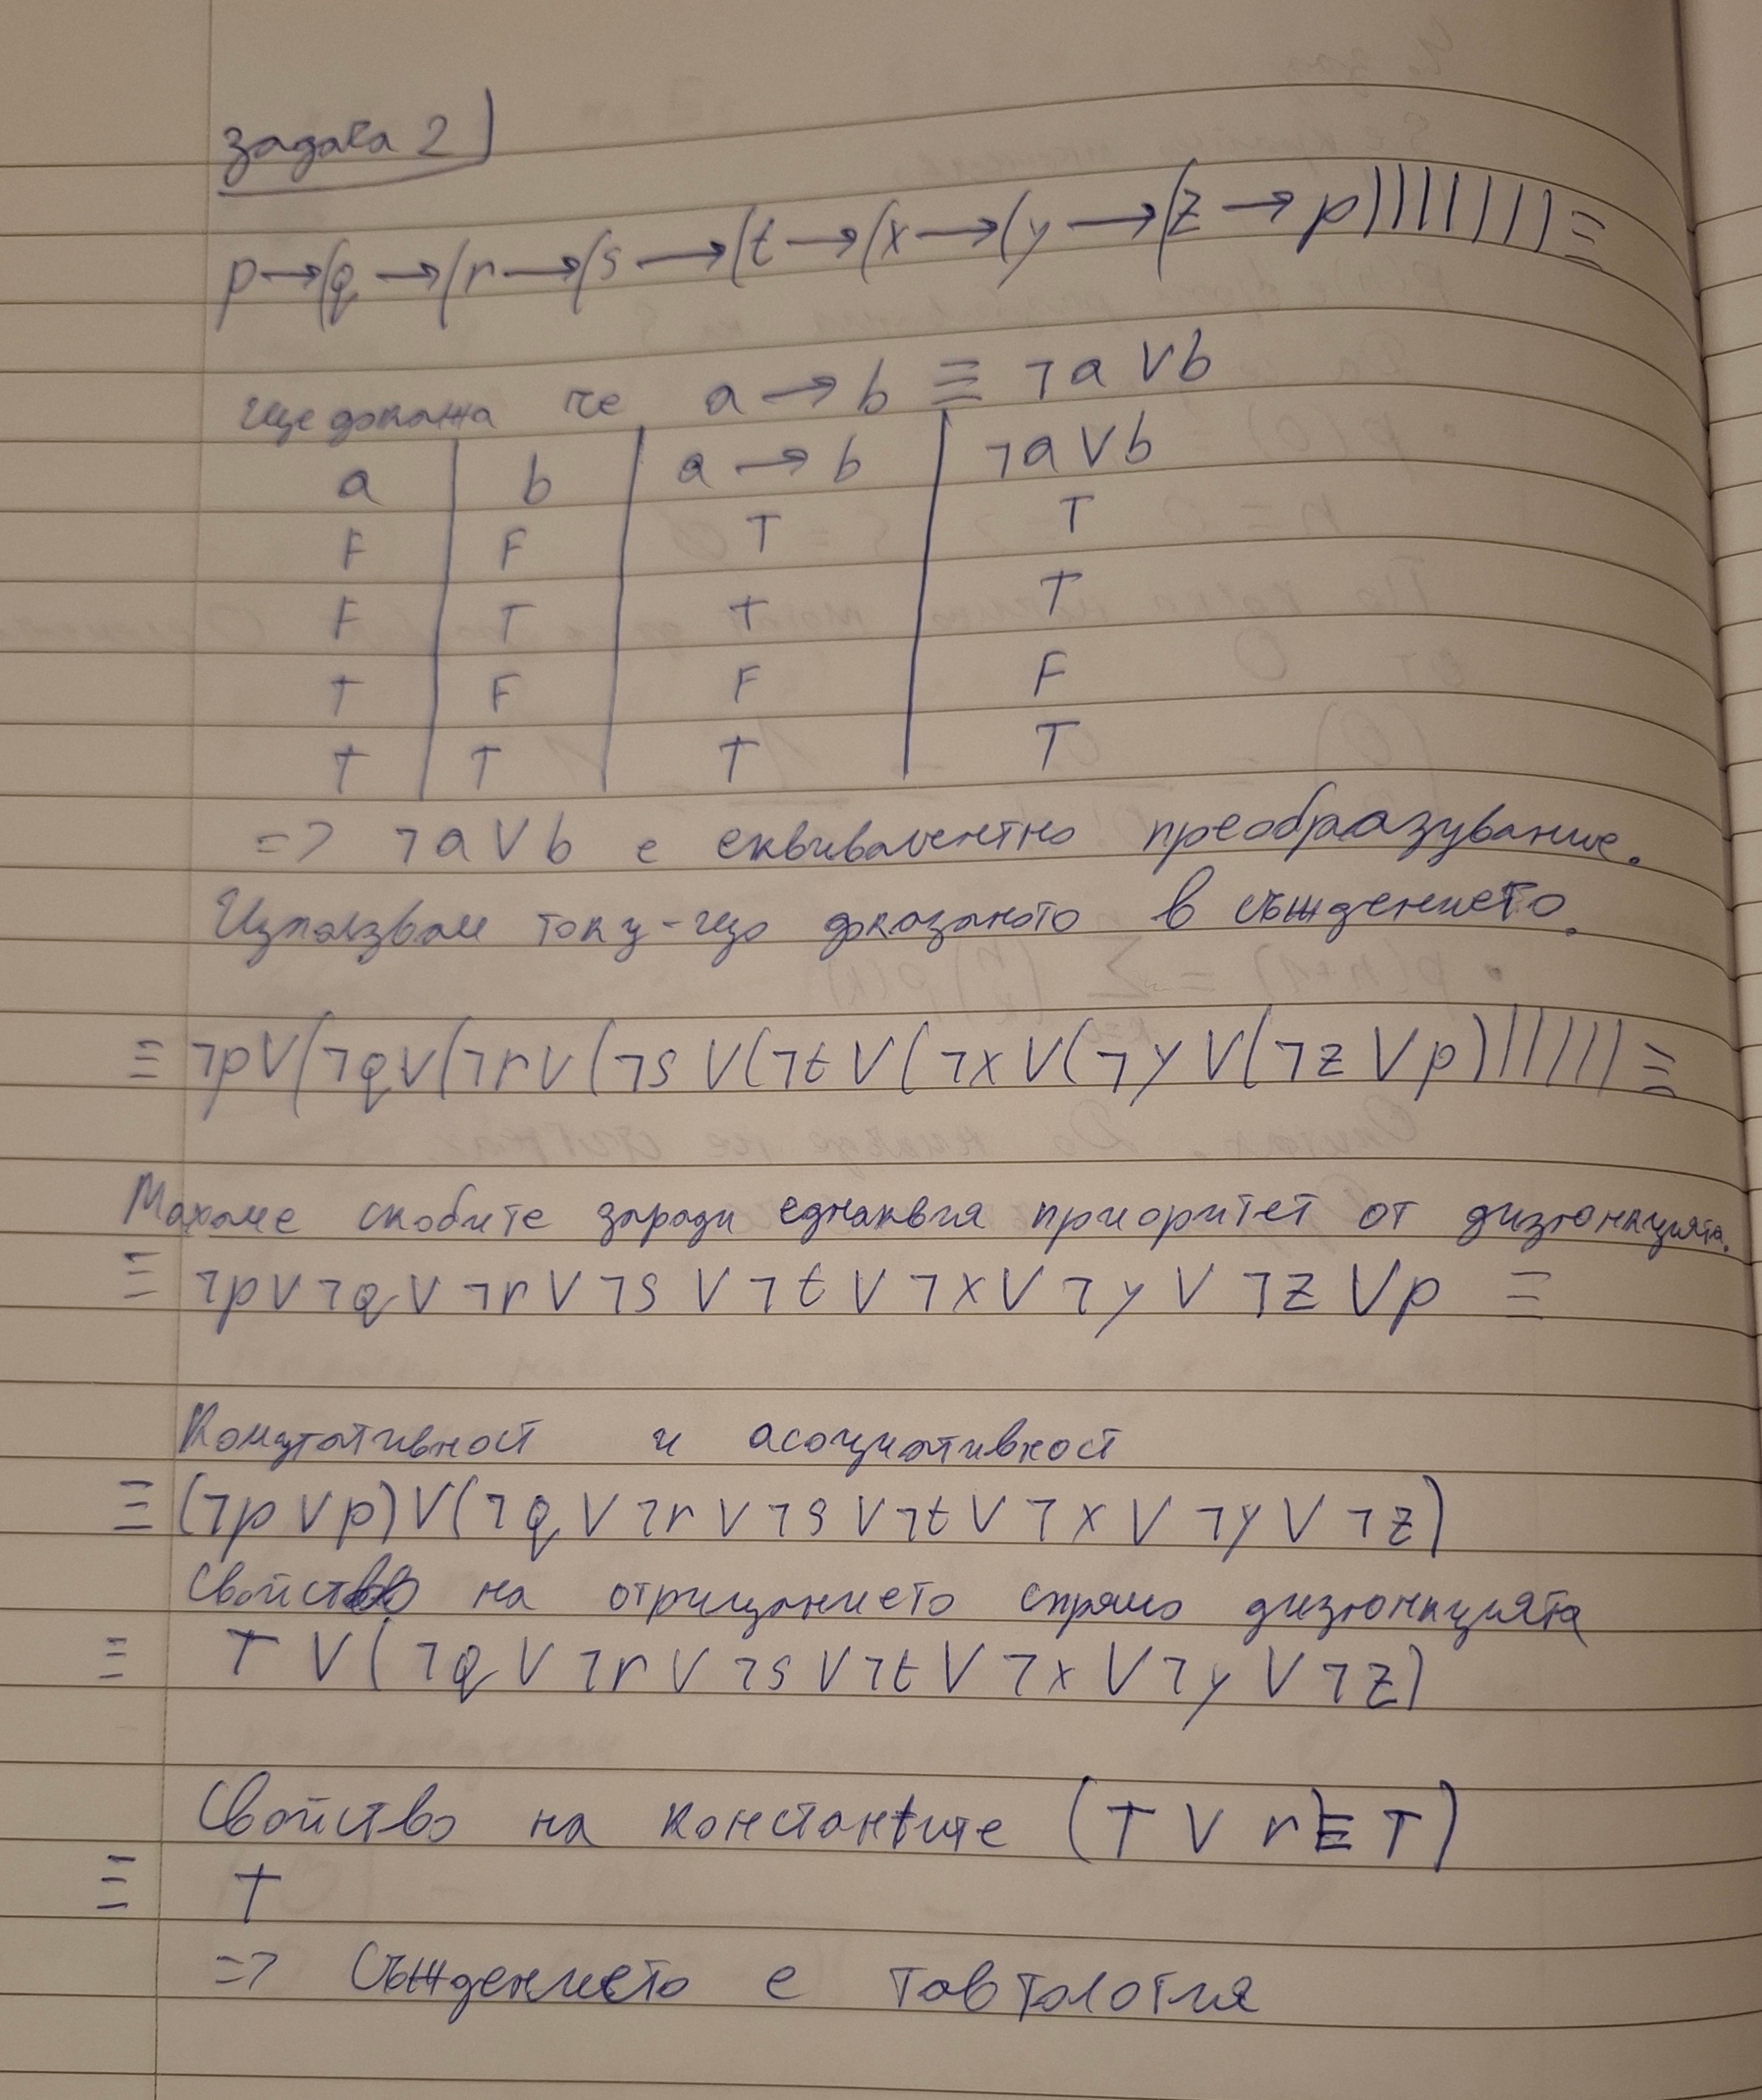 задача 2)
p→(q→(r→(s→(t→(x→(y→(z→p)))))))≡
Ще докажа че a→b ≡ ¬a∨b
a b a→b ¬a∨b
F F T T
F T T T
T F F F
T T T T
=> ¬a∨b е еквивалентно преобразувание.
Използвам току-що доказаното в съждението.
≡ ¬p∨(¬q∨(¬r∨(¬s∨(¬t∨(¬x∨(¬y∨(¬z∨p)))))))≡
Махаме скобите заради еднаквия приоритет от дизюнкцията.
≡ ¬p∨¬q∨¬r∨¬s∨¬t∨¬x∨¬y∨¬z∨p ≡
Комутативност и асоциативност
≡ (¬p∨p)∨(¬q∨¬r∨¬s∨¬t∨¬x∨¬y∨¬z)
Свойство на отрицанието спрямо дизюнкцията
≡ T∨(¬q∨¬r∨¬s∨¬t∨¬x∨¬y∨¬z)
Свойство на константите (T∨r≡T)
≡ T
=> Съждението е тавтология